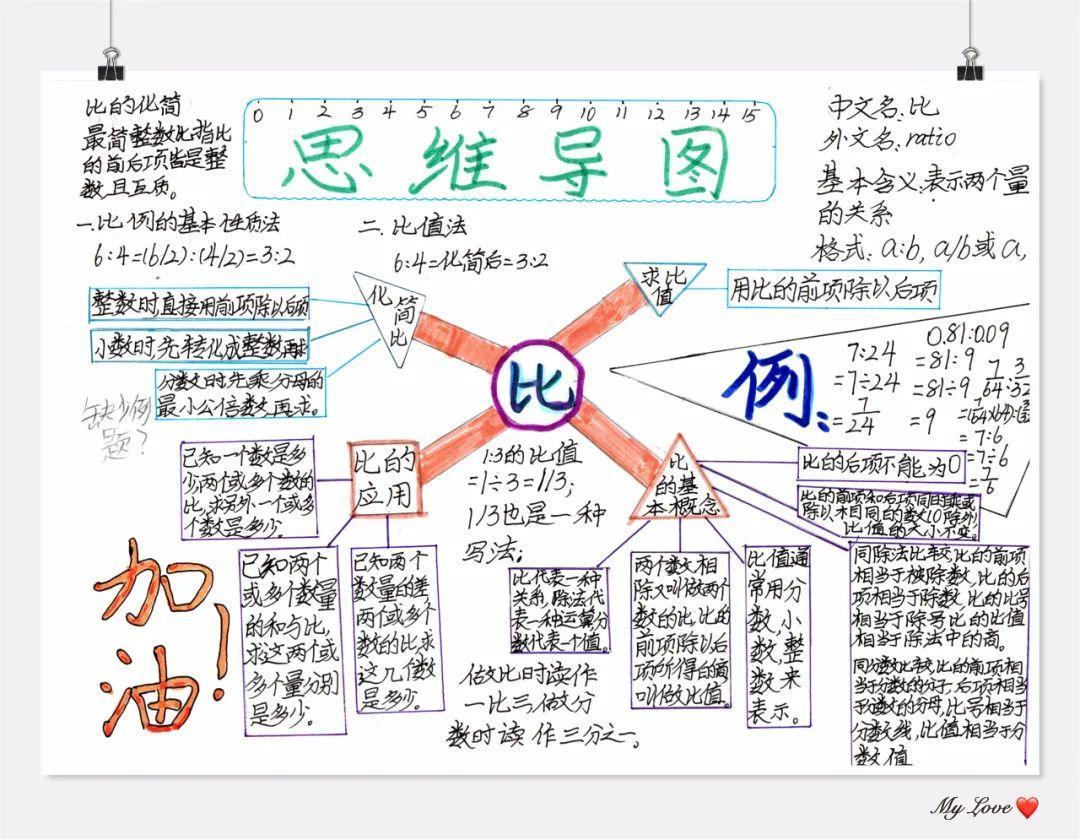 比的化简
最简整数比指比
的前后项皆是整
数且互质。
0 1 2 3 4 5 6 7 8 9 10 11 12 13 14 15
思维导图
中文名:比
外文名:ratio
基本含义:表示两个量
的关系
格式:a:b, a/b或a,
一.比例的基本性质法
6:4=(6/2):(4/2)=3:2
二.比值法
6:4=化简后=3:2
化简比
整数时直接用前项除以后项
小数时先转化成整数再求
分数时先乘分母的
最小公倍数,再求。
缺少例
题?
求比
值
用比的前项除以后项
比
例:
7:24
=7÷24
=7/24
0.81:0.09
=81:9
=81÷9
=9
7/64:3/32
=7:6
=7÷6
=7/6
比的
应用
已知一个数是多
少,两个或多个数的
比,求另外一个或多
个数是多少.
已知两个
或多个数量
的和与比,
求这两个或
多个量分别
是多少。
已知两个
数量的差,
两个或多个
数的比,求
这几个数
是多少。
1:3的比值
=1÷3=1/3;
1/3也是一种
写法;
做比时读作
一比三,做分
数时读作三分之一。
比
的基
本概念
比的后项不能为0
比的前项和后项同时乘或
除以相同的数(0除外)
比值的大小不变。
比代表一种
关系,除法代
表一种运算分
数代表一个值。
两个数相
除又叫做两个
数的比,比的
前项除以后
项所得的商
叫做比值.
比值通
常用分
数,小
数,整
数来
表示。
同除法比较,比的前项
相当于被除数,比的后
项相当于除数,比的比号
相当于除号比的比值
相当于除法中的商。
同分数比较,比的前项相
当于分数的分子,后项相当
于分数的分母,比号相当于
分数线,比值相当于分
数值
加
油!
My Love